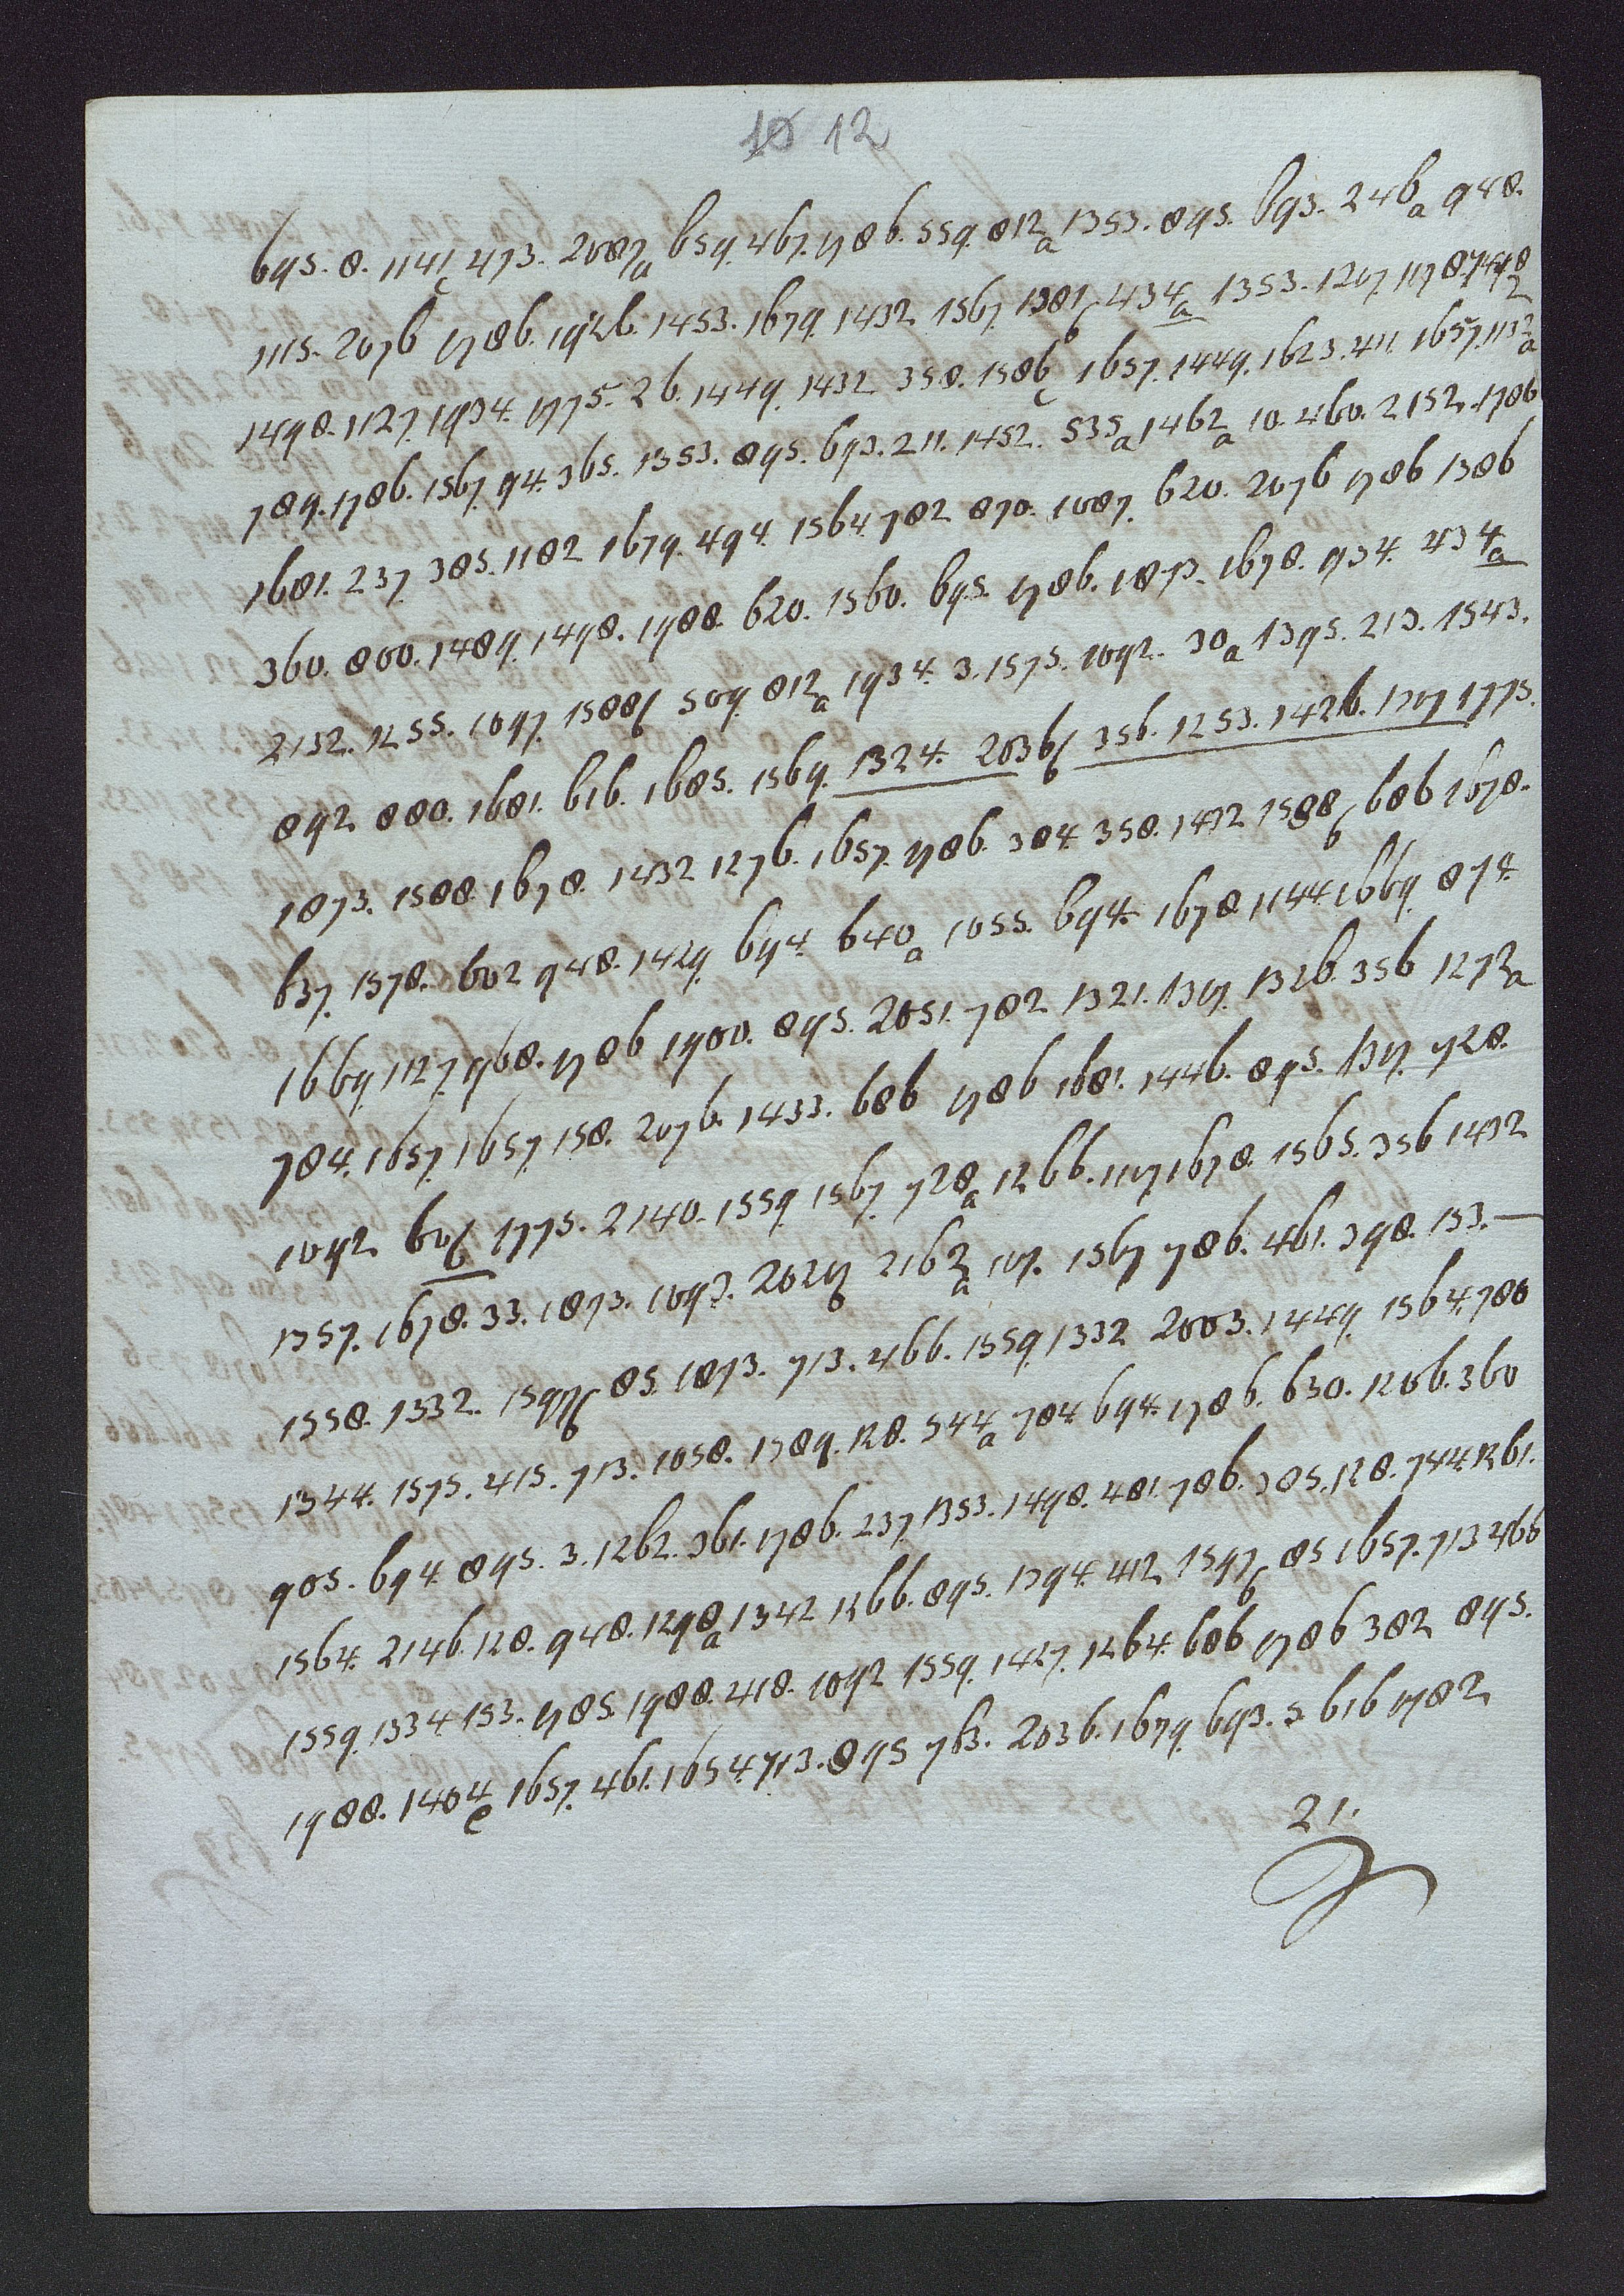 10 12
695. 8. 1141c 473. 2087a 659. 467. 1786. 559. 812a 1353. 895. 693. 246a 948.
1115. 2076 1786. 1926. 1453. 1679. 1432 1567. 1381b 434a 1353. 1207. 1178.
1498. 1127. 1934. 1775. 26. 1449. 1432 358. 1586c 1657. 1449. 1623. 411. 1657. 1132a
789. 1786. 1567. 94. 365. 1353. 895. 693. 211. 1452. 535a 1462a 10. 460. 2152. 1786
1681. 237. 385. 1182 1679. 494. 1564. 782 870. 1087. 620. 2076 1786 1386
360. 800. 1489. 1498. 1988. 620. 1560. 695. 1786. 1873. 1678. 934. 434a
2132. 1255. 1097. 1588b 509. 812a 1934. 3. 1575. 1092. 30a 1395. 213. 1543.
892 880. 1681. 616. 1685. 1569. 1324. 2036b 356. 1253. 1426. 1707 1775.
1873. 1588. 1678. 1432 1276. 1657. 1786. 384 358. 1432 1588b 686 1678.
637. 1578. 602 948. 1429. 694. 640a 1055. 694. 1678. 1144. 1669. 874.
1669. 1127. 1968. 1786 1900. 895. 2051. 782 1321. 1317. 1326. 356 1272a
784. 1657. 1657. 158. 2076. 1433. 686 1786 1681. 1446. 895. 1317. 928.
1092 607b 1775. 2140. 1559. 1567. 928a 1266. 1107. 1678. 1565. 356 1432
1357. 1678. 33. 1873. 1093. 2029b 2162a 107. 1567 786. 461. 398. 153.—
1558. 1332. 1597b 85. 1873. 713. 466. 1559. 1332 2003. 1449. 1564. 780
1344. 1575. 415. 713. 1058. 1389. 128. 544a 784 694. 1786. 630. 1206. 360
905. 694. 895. 3. 1262. 361. 1786. 237. 1353. 1498. 481. 786. 385. 128. 744. 1261.
1564. 2146. 128. 948. 1298a 1342 1266. 895. 1394. 412 1597b 85 1657. 713 466
1559. 1334 153. 1785. 1988. 418. 1092 1559. 1427. 1264. 686 1786 382 895.
1988. 1404e 1657. 461. 1654. 713. 895 763. 2036. 1679. 693. 5 616 1782
21.